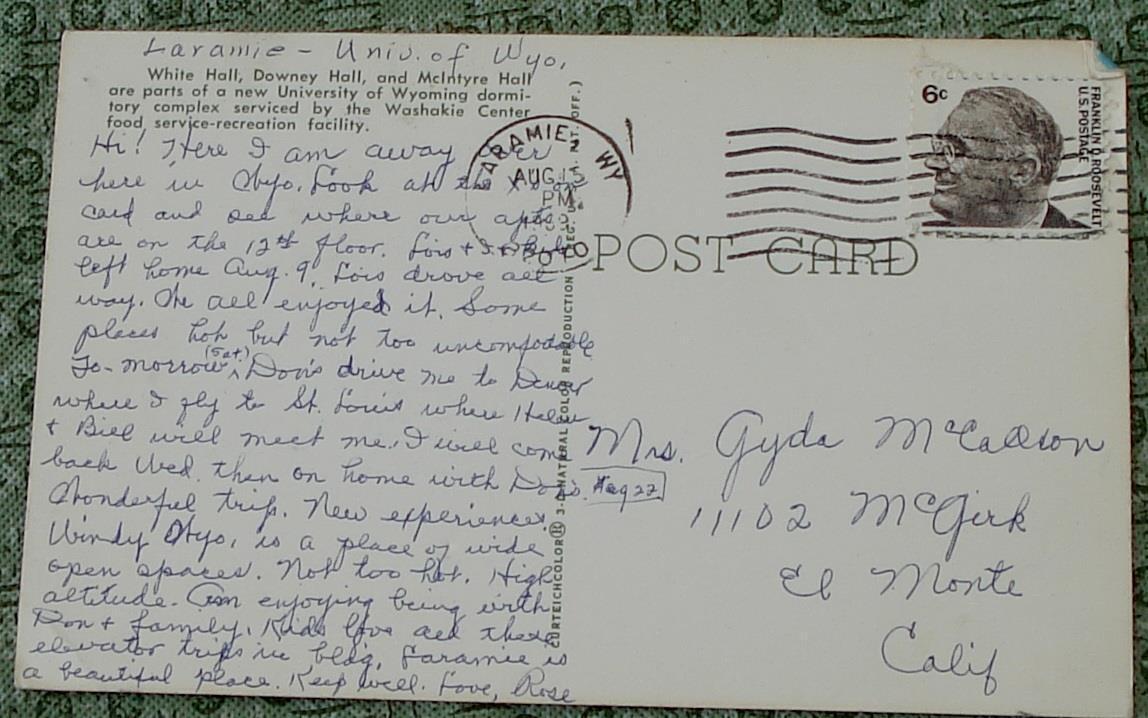 Laramie - Univ. of Wyo.
White Hall, Downey Hall, and McIntyre Hall
are parts of a new University of Wyoming dormi-
tory complex serviced by the Washakie Center
food service-recreation facility.
Hi! Here I am away over
here in Wyo. Look at the
card and see where our apts
are on the 12th floor. Lois +
left home Aug. 9, Lois drove all
way. We all enjoyed it. Some
places hot but not too uncomfortable
To-morrow (Sat.) Don's drive me to Denver
where I fly to St. Louis where Helen
+ Bill will meet me. I will come
back Wed. then on home with Don's. Aug 22
Wonderful trip. New experiences.
Windy Wyo. is a place of wide
open spaces. Not too hot. High
altitude. Am enjoying being with
Don + family. Kids love all these
elevator trips in bldg. Laramie is
a beautiful place. Keep well. Love, Rose
CURTEICHCOLOR® 3-D NATURAL COLOR REPRODUCTION
LARAMIE, WY
AUG 15
PM
6c
FRANKLIN D. ROOSEVELT
U.S. POSTAGE
POST CARD
Mrs. Gyda
11102 McGirk
El Monte
Calif